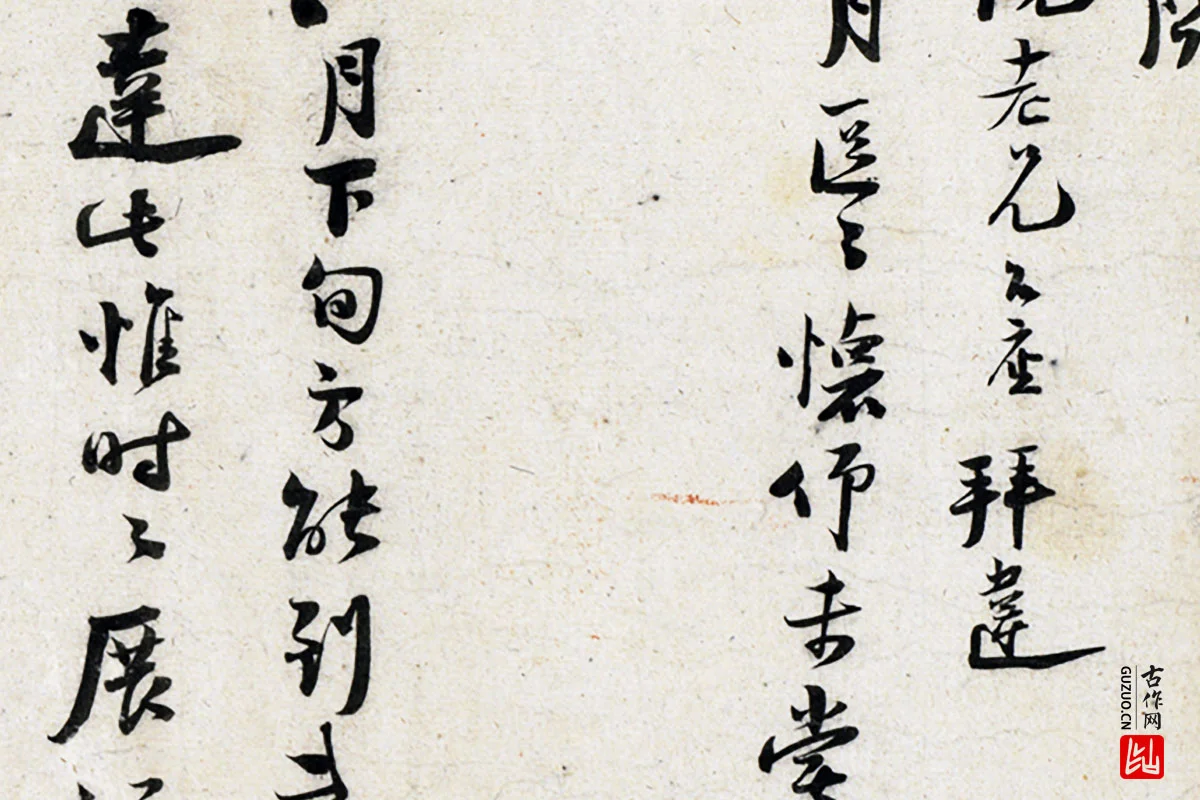 老兄公座拜違
月區〻懷仰未嘗
月下旬方能到
達此惟時〻展
古作网
GUZUO.CN